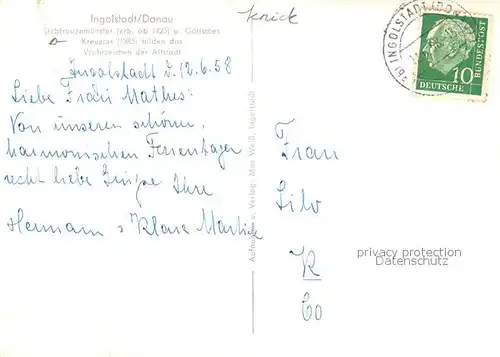 Ingolstadt/Donau
Liebfrauenmünster (erb. ab 1425) u. Gotisches
Kreuztor (1385) bilden das
Wahrzeichen der Altstadt
Knick
Ingolstadt d. 12.6.58
Liebe Frau Mathes!
Von unseren schönen,
harmonischen Ferientagen
recht liebe Grüße Ihre
Hermann u Klara
Frau
K
60
INGOLSTADT (DONAU)
DEUTSCHE
BUNDESPOST
10
Aufnahme u. Verlag: Max Weiß, Ingolstadt
privacy protection
Datenschutz